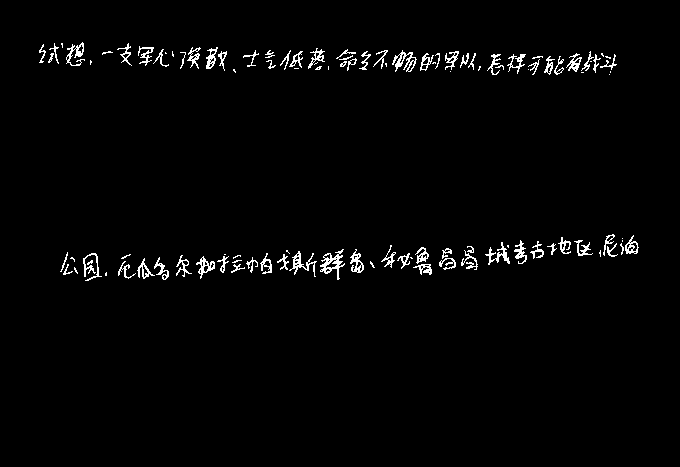 试想,一支军心涣散、士气低落、命令不畅的军队,怎样可能有战斗
公园,厄瓜多尔加拉帕戈斯群岛、秘鲁昌昌城考古地区,尼泊